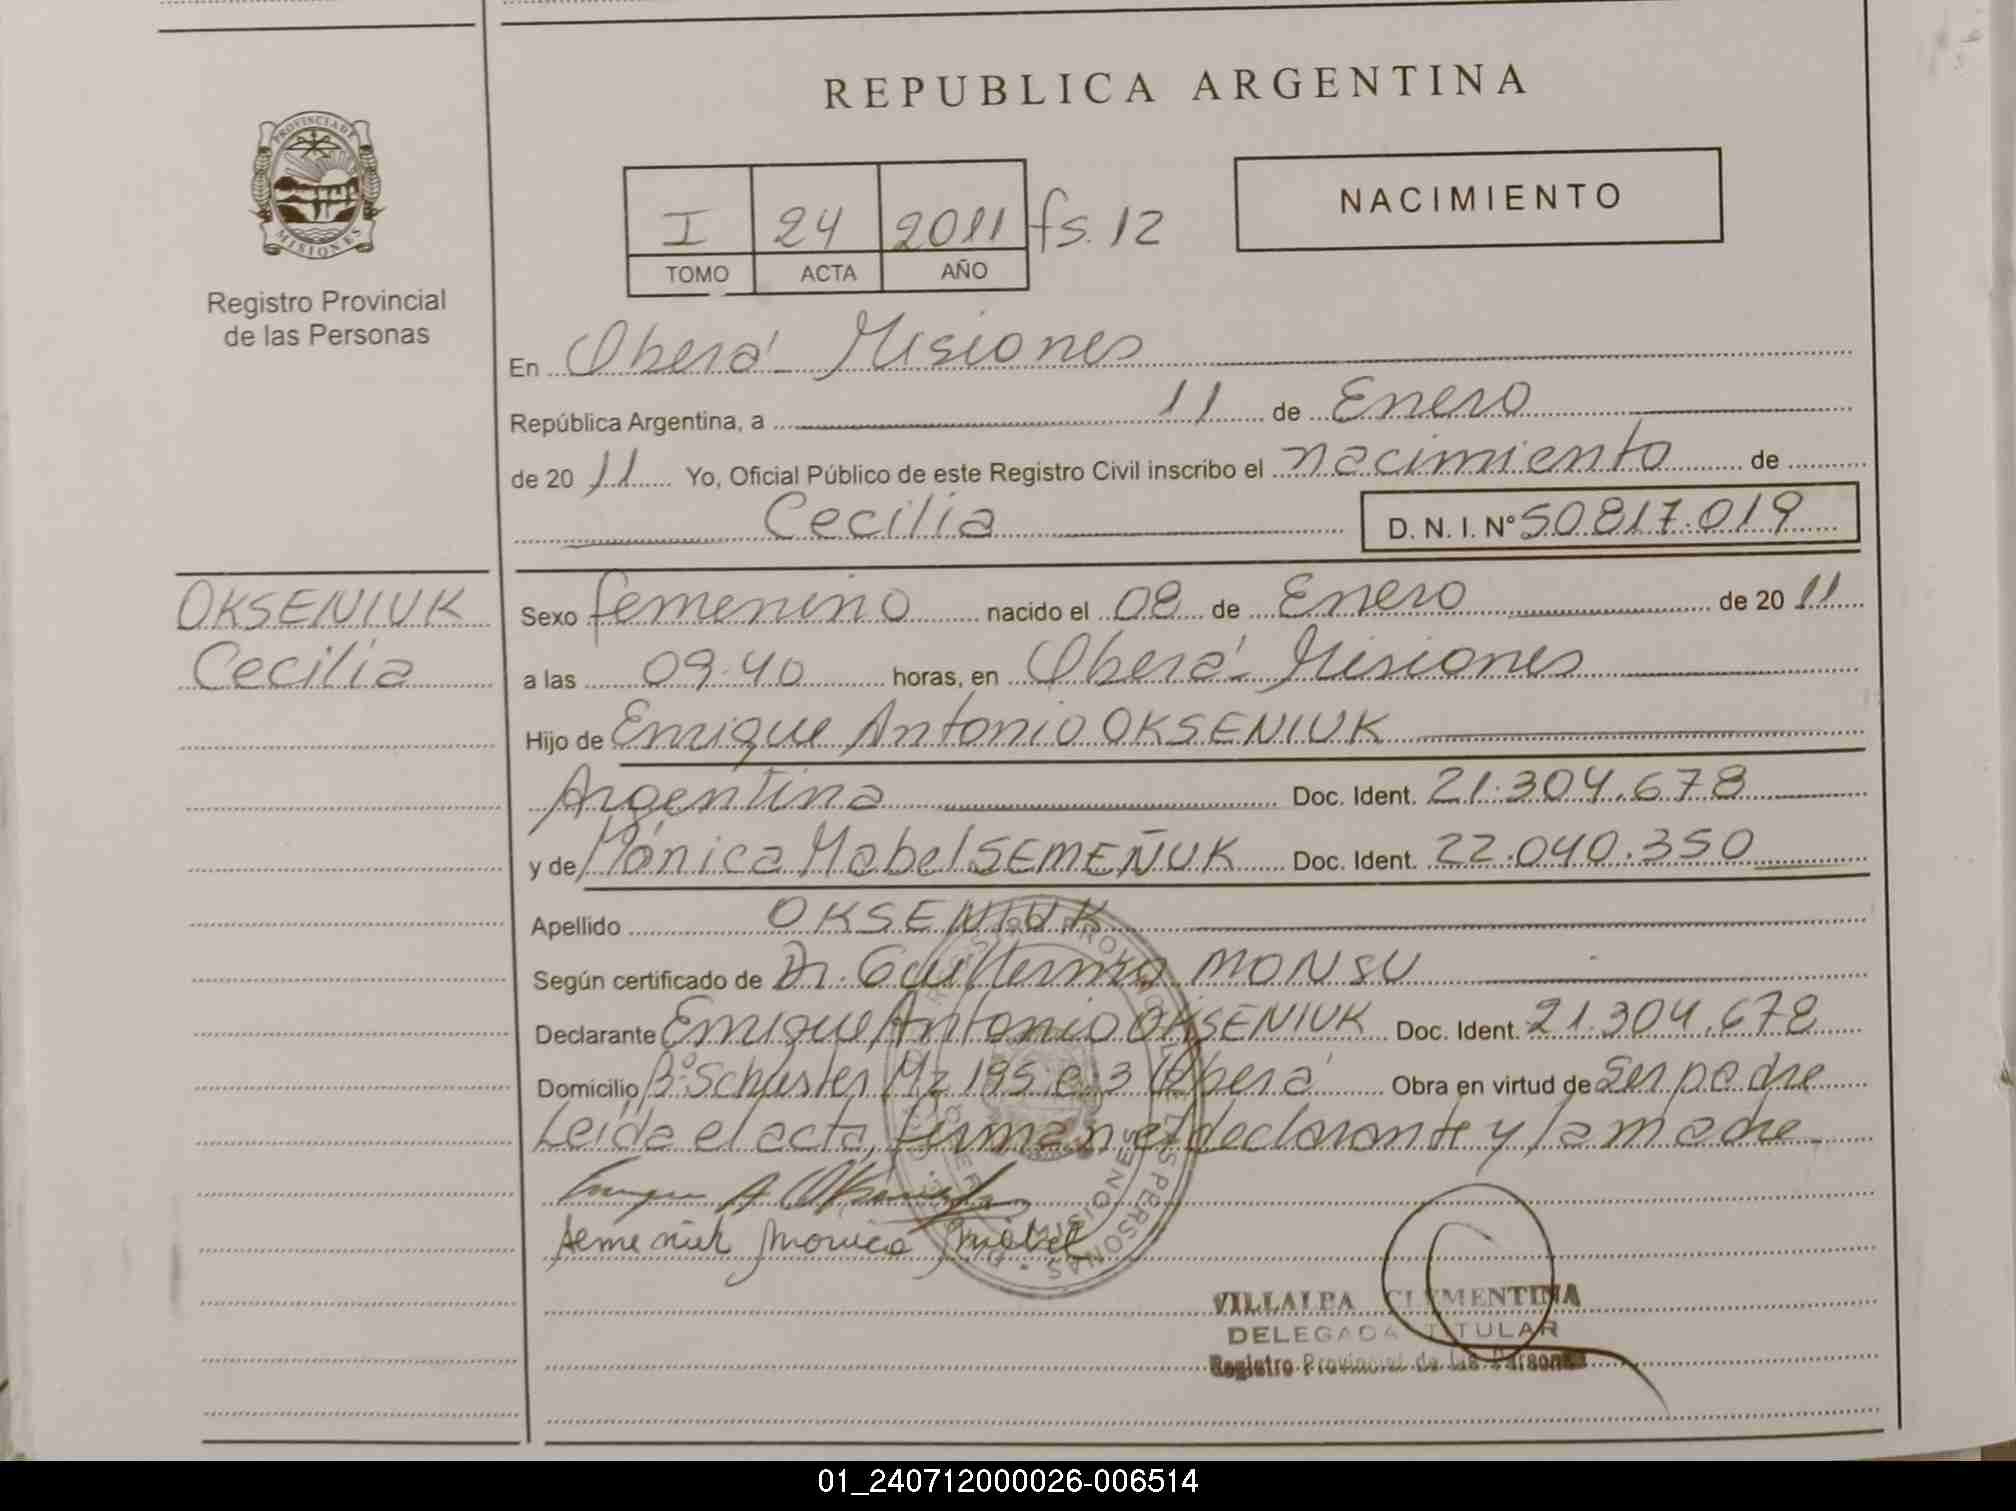 REPUBLICA ARGENTINA
PROVINCIA DE MISIONES
Registro Provincial
de las Personas
I 24 2011 fs. 12
TOMO ACTA AÑO
NACIMIENTO
En Oberá Misiones
República Argentina, a 11 de Enero
de 20 11 Yo, Oficial Público de este Registro Civil inscribo el nacimiento de
Cecilia D. N. I. Nº 50.817.019
OKSENIUK
Cecilia
Sexo femenino nacido el 08 de Enero de 20 11
a las 09.40 horas, en Oberá Misiones
Hijo de Enrique Antonio OKSENIUK
Argentina Doc. Ident. 21.304.678
y de Mónica Mabel SEMEÑUK Doc. Ident. 22.040.350
Apellido OKSENIUK
Según certificado de Dr. Guillermo MONSU
Declarante Enrique Antonio OKSENIUK Doc. Ident. 21.304.678
Domicilio Bº Schuster Mz 195 c. 3 Oberá Obra en virtud de Ser padre
Leida el acta, firman el declarante y la madre
Semeñuk Monica Mabel
VILLALBA CLEMENTINA
DELEGADA TITULAR
Registro Provincial de las Personas
01_240712000026-006514